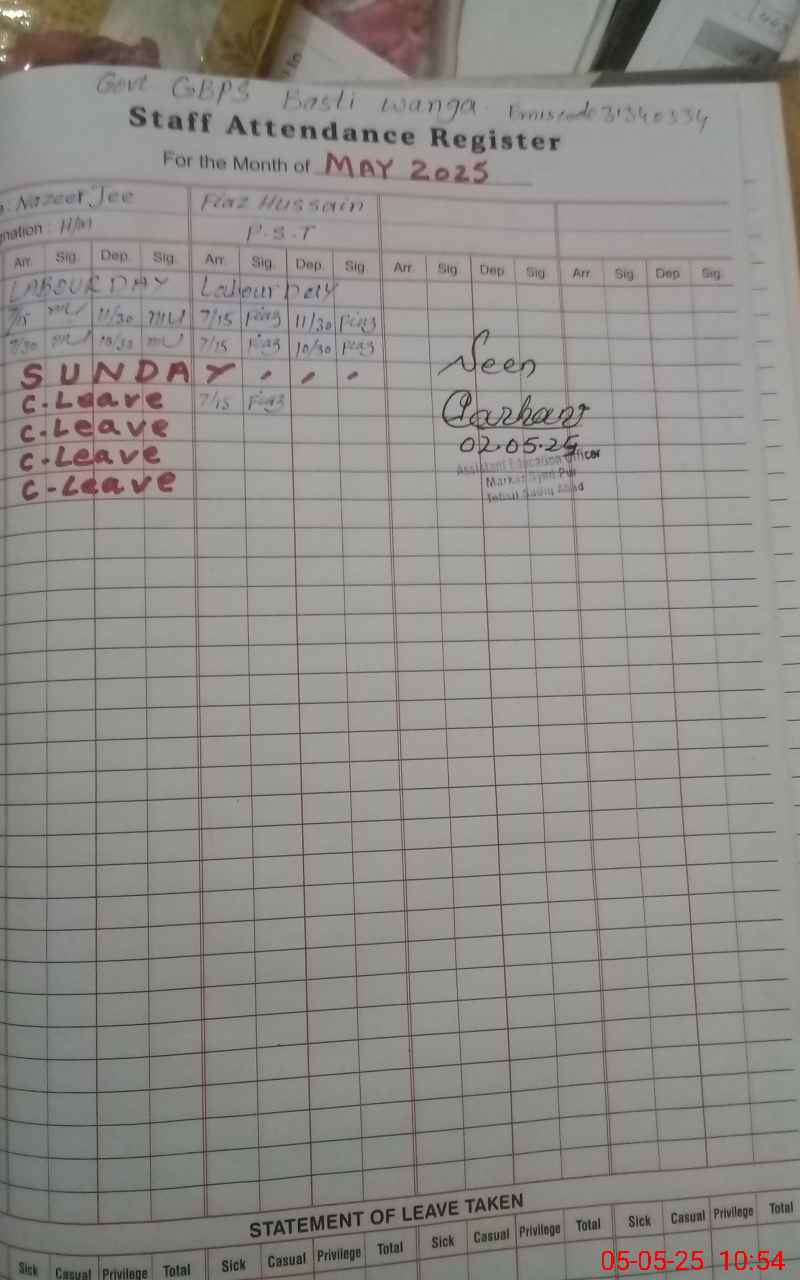 Govt GBPS Basti wanga. Emis code 31340334
Staff Attendance Register
For the Month of MAY 2025
Nazeer Jee Fiaz Hussain
nation : H/M P.S.T
Arr. Sig. Dep. Sig. Arr. Sig. Dep. Sig. Arr. Sig. Dep. Sig. Arr. Sig. Dep. Sig.
LABOUR DAY Labour Day
7/15 11/30 7/15 Fiaz 11/30 Fiaz
7/15 Fiaz 10/30 Fiaz
Seen
SUNDAY
C-Leave 7/15 Fiaz
C-Leave
02.05.25
C-Leave
Assistant Education Officer
C-Leave
Markaz
Tehsil Sadiq Abad
STATEMENT OF LEAVE TAKEN
Sick Casual Privilege Total Sick Casual Privilege Total Sick Casual Privilege Total Sick Casual Privilege Total
05-05-25 10:54